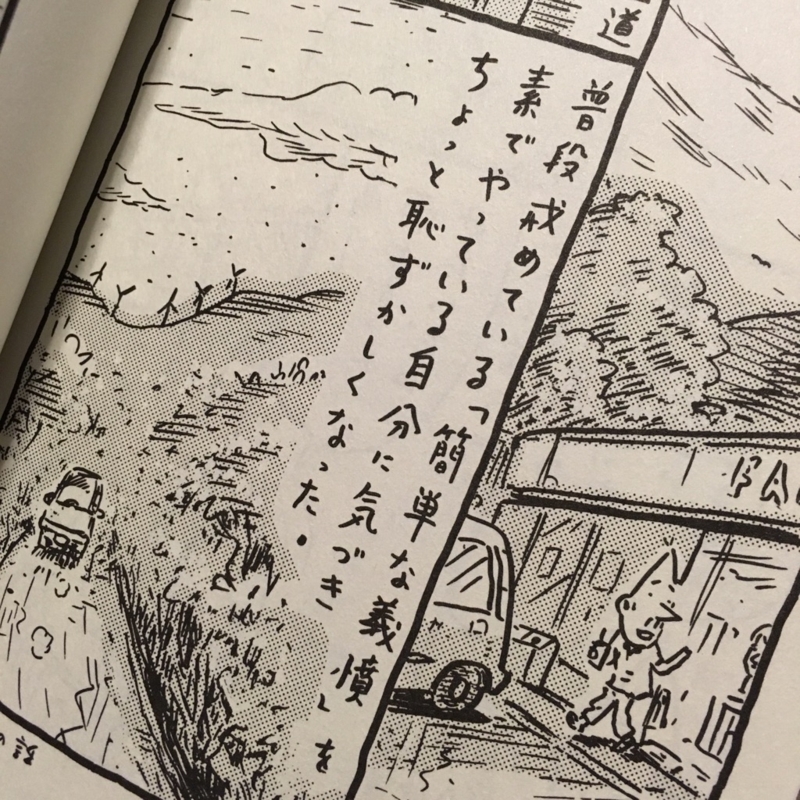 道
普段戒めている「簡単な義憤」を
素でやっている自分に気づき
ちょっと恥ずかしくなった。
FA
の話